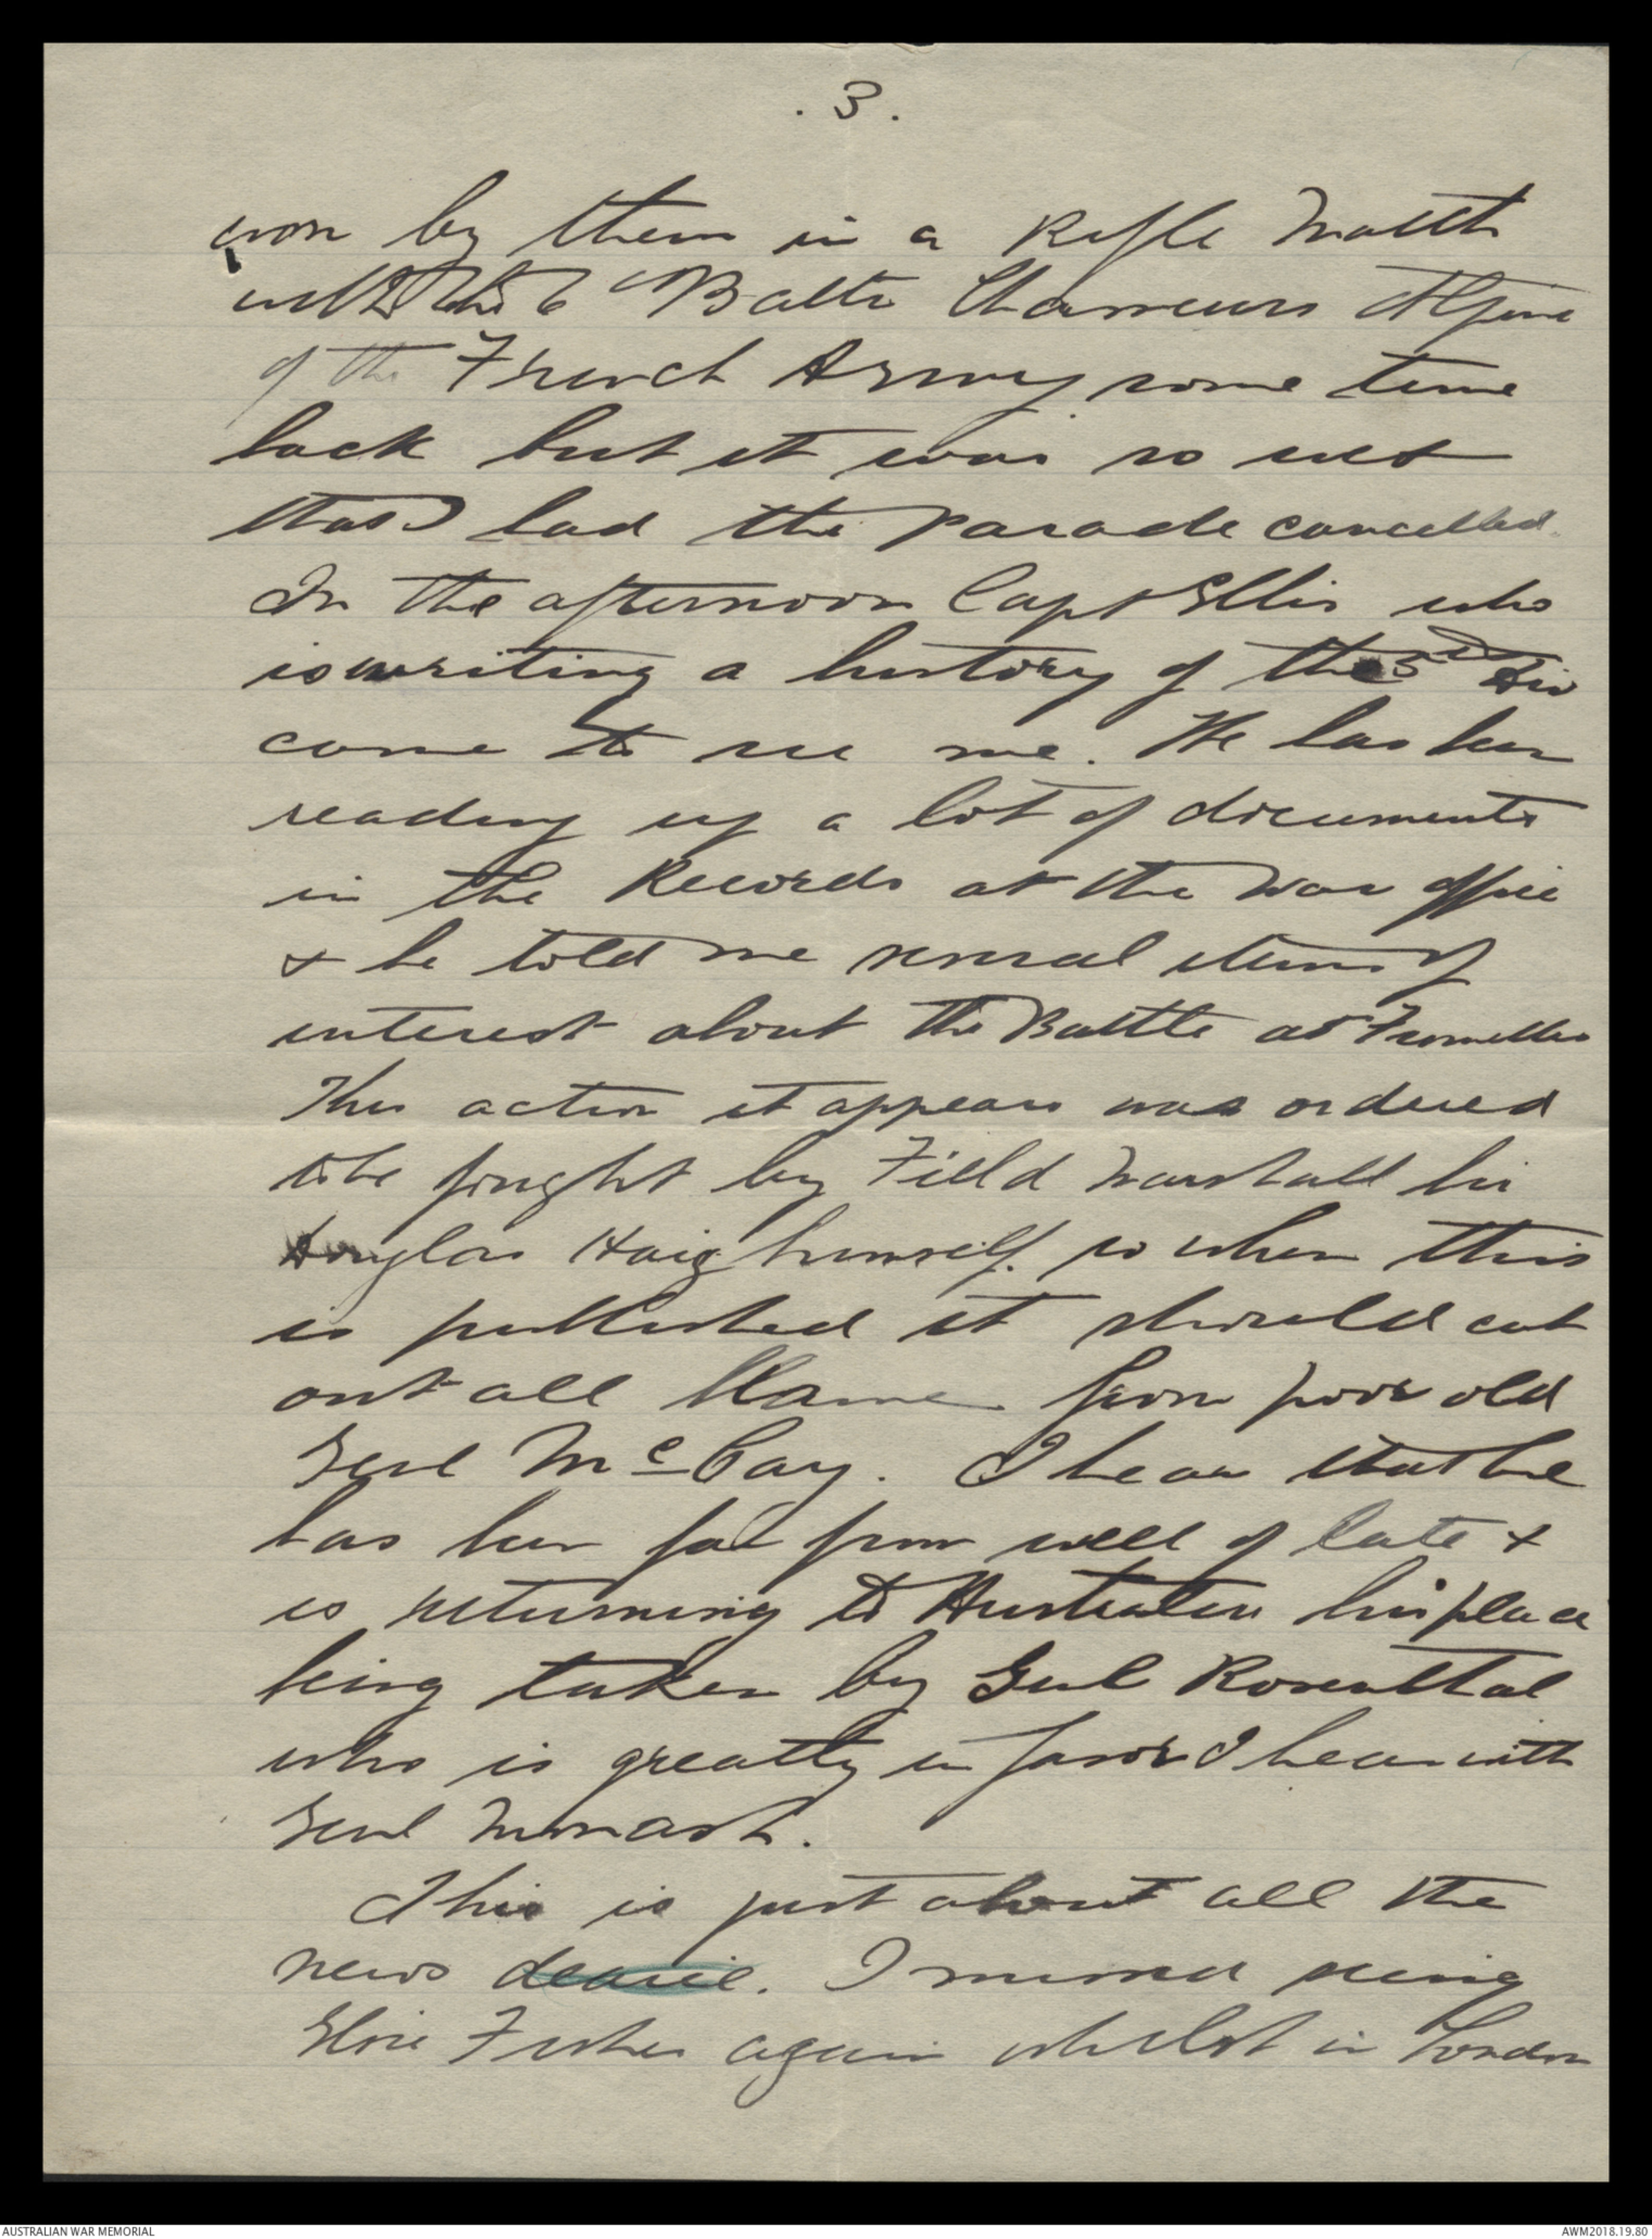 . 3 .
won by them in a Rifle Match
with the 6 Battn Chasseurs Alpine
of the French Army some time
back but it was so wet
that I had the parade cancelled.
In the afternoon Capt Ellis who
is writing a history of the 5th Div
came to see me. He has been
reading up a lot of documents
in the Records at the War Office
& he told me several items of
interest about the Battle at Fromelles
This action it appears was ordered
to be fought by Field Marshall Sir
Douglas Haig himself. so when this
is published it should cut
out all blame from poor old
Genl McCay. I hear that he
has been far from well of late &
is returning to Australia his place
being taken by Genl Rosenthal
who is greatly in favor I hear with
Genl Monash.
This is just about all the
news dearie. I missed seeing
Elsie Fisher again whilst in London
AUSTRALIAN WAR MEMORIAL
AWM2018.19.80